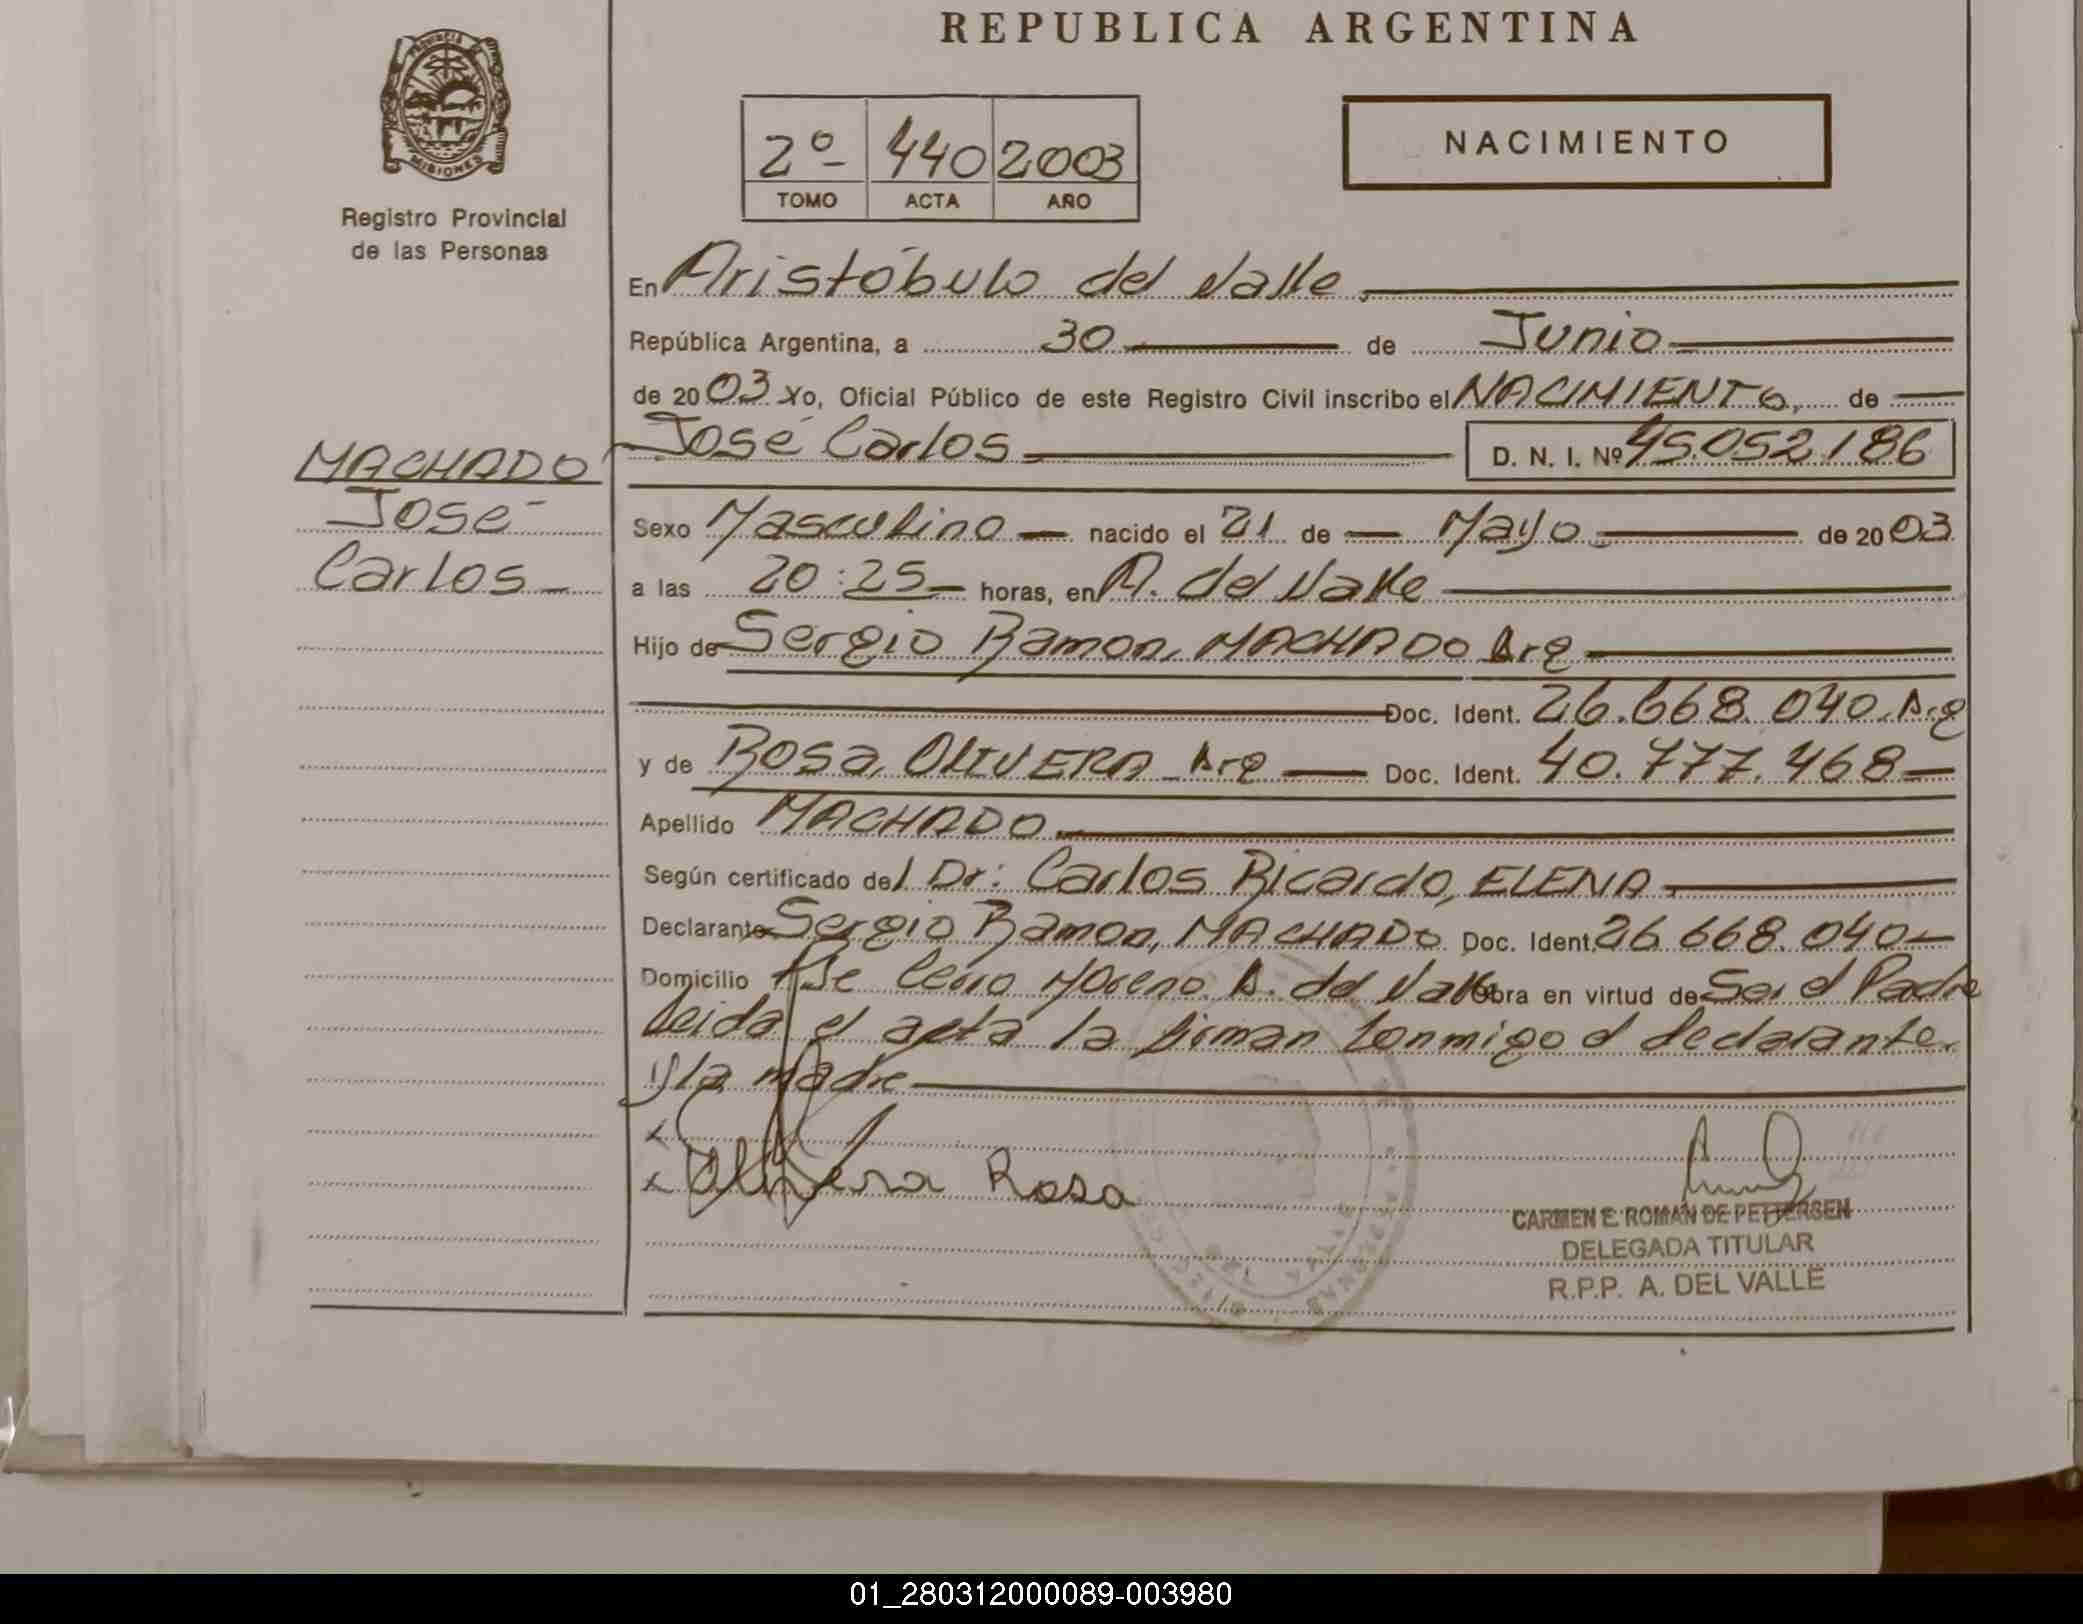 REPUBLICA ARGENTINA
PROVINCIA DE
MISIONES
Registro Provincial
de las Personas
2º 440 2003
TOMO ACTA AÑO
NACIMIENTO
En Aristóbulo del Valle,
República Argentina, a 30 de Junio
de 2003 Yo, Oficial Público de este Registro Civil inscribo el NACIMIENTO, de
José Carlos D. N. I. Nº 45.052.186
MACHADO
José
Carlos
Sexo Masculino nacido el 21 de Mayo de 2003
a las 20:25 horas, en A. del Valle
Hijo de Sergio Ramon, MACHADO Arg
Doc. Ident. 26.668.040. Arg
y de Rosa, OLIVERA Arg Doc. Ident. 40.777.468
Apellido MACHADO
Según certificado del Dr: Carlos Ricardo, ELENA
Declarante Sergio Ramon, MACHADO Doc. Ident. 26.668.040
Domicilio Pje Cerro Moreno A. del Valle obra en virtud de Ser el Padre
Leida el acta la firman conmigo el declarante
y la madre
x
x Olivera Rosa
CARMEN E. ROMÁN DE PETTERSEN
DELEGADA TITULAR
R.P.P. A. DEL VALLE
01_280312000089-003980